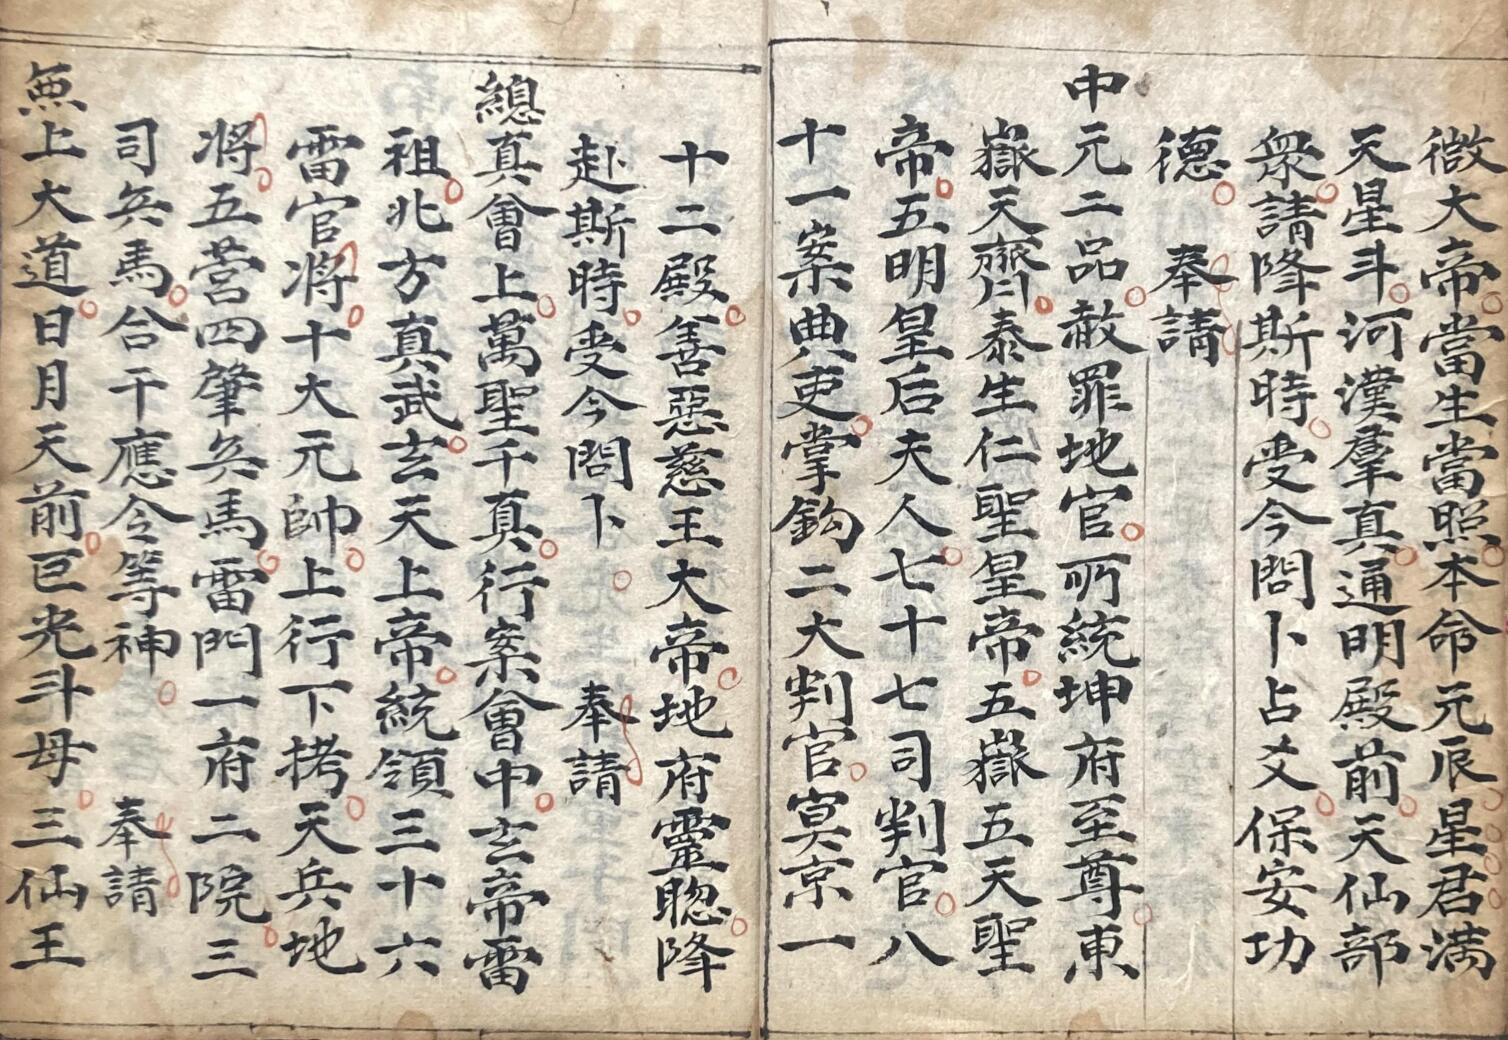 微大帝當生當照本命元辰星君滿
天星斗河漢羣真通明殿前天仙部
衆請降斯時受今問卜占爻保安功
德　奉請
中元二品赦罪地官所統坤府至尊東
嶽天齊泰生仁聖皇帝五嶽五天聖
帝五明皇后夫人七十七司判官八
十一案典吏掌鈎二大判官冥京一
十二殿善惡慈王大帝地府靈聰降
赴斯時受今問卜　奉請
總真會上萬聖千真行案會中玄帝雷
祖北方真武玄天上帝統領三十六
雷官将十大元帥上行下拷天兵地
将五營四肇兵馬雷門一府二院三
司兵馬合干應令等神　奉請
無上大道日月天前巨光斗母三仙王